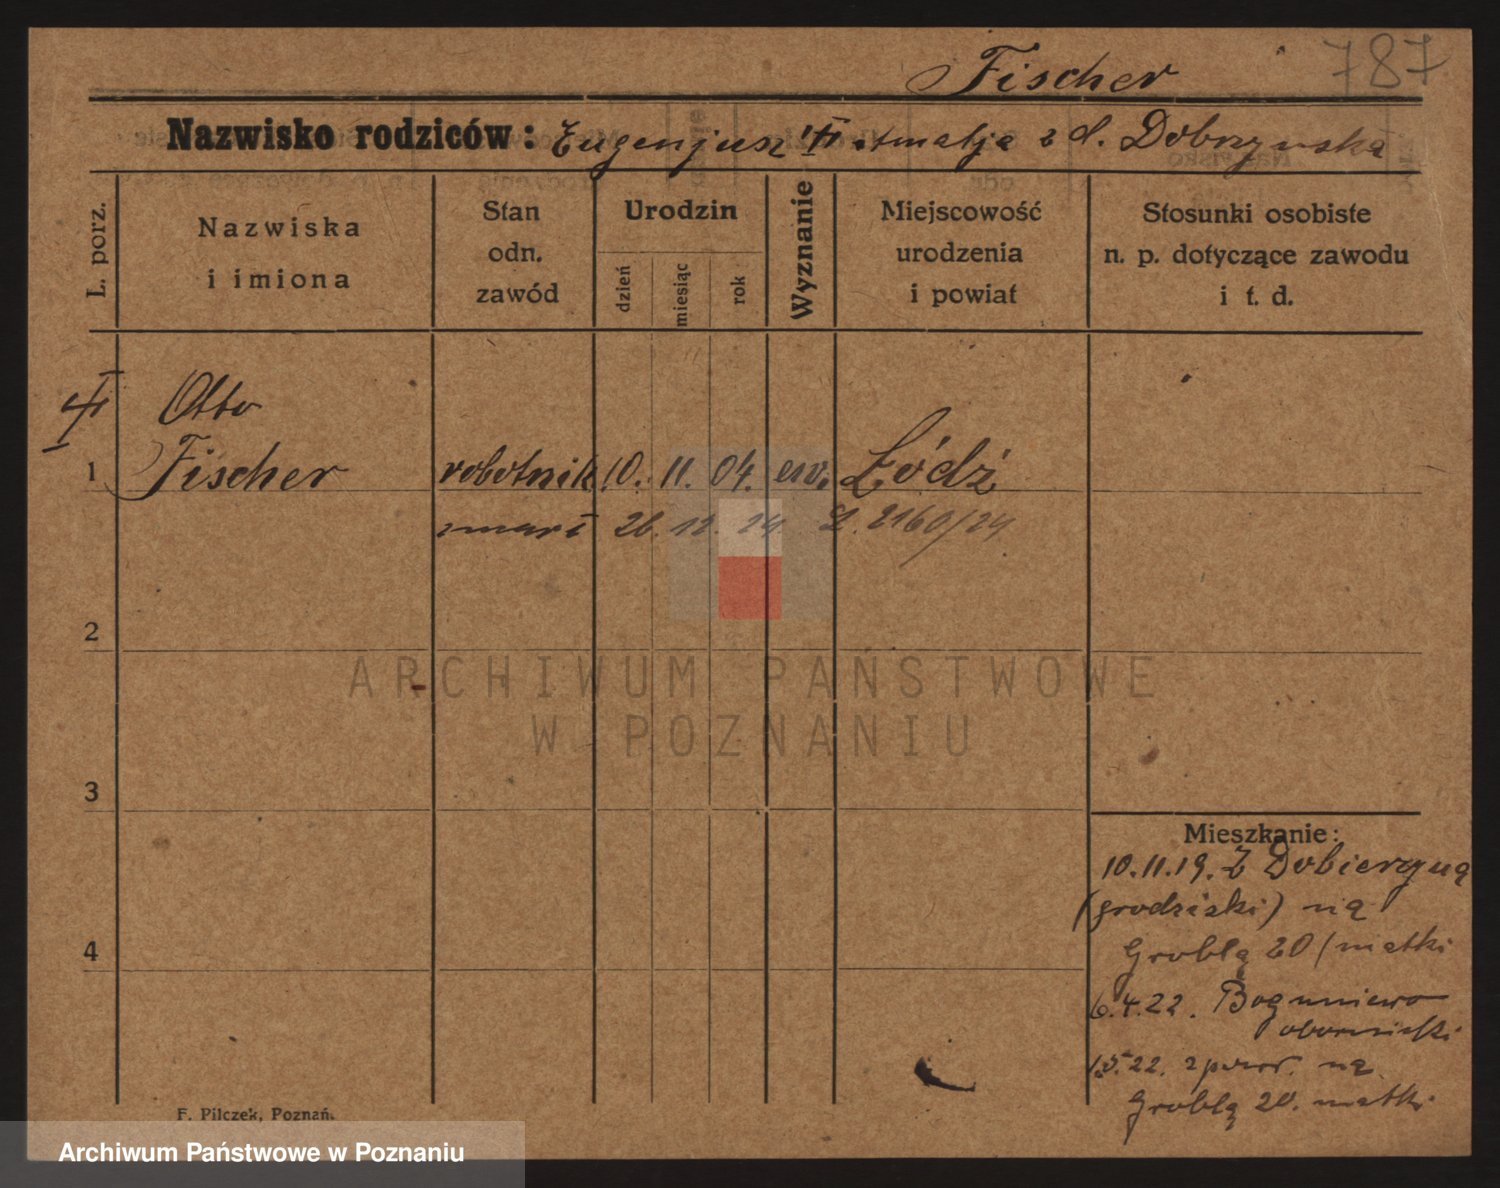 Fischer 787
Nazwisko rodziców: Eugenjusz Amalja z d. Dobrzynska
L. porz.
Nazwiska i imiona
Stan odn. zawód
Urodzin
dzień
miesiąc
rok
Wyznanie
Miejscowość urodzenia i powiat
Stosunki osobiste n. p. dotyczące zawodu i t. d.
Otto
1 Fischer robotnik 10. 11. 04. ew. Łódź
zmarł 26. 12. 24 L. 2160/24
2
ARCHIWUM PAŃSTWOWE
W POZNANIU
3
Mieszkanie:
10.11.19. Z Dobieżyna
(grodziski) na
4
Groblą 20 (matki
6.4.22. Boguniewo
obornicki
1.5.22. z powr. na
Groblą 20. matki
F. Pilczek, Poznań.
Archiwum Państwowe w Poznaniu